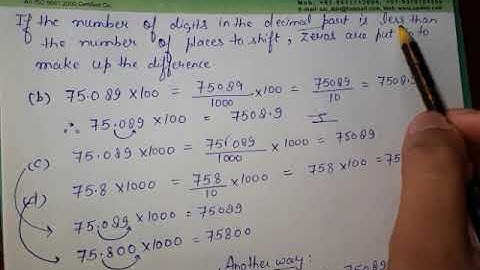 An ISO 9001:2000 Certified Co.
If the number of digits in the decimal part is less than
the number of places to shift, zeros are put to
make up the difference
(b) 75.089 × 100 = 75089/1000 × 100 = 75089/10 = 7508.9
∴ 75.089 × 100 = 7508.9
(c) 75.089 × 1000 = 75089/1000 × 1000 = 75089
(d) 75.8 × 1000 = 758/10 × 1000 = 758 × 100 = 75
75.089 × 1000 = 75089
75.800 × 1000 = 75800
Another way: